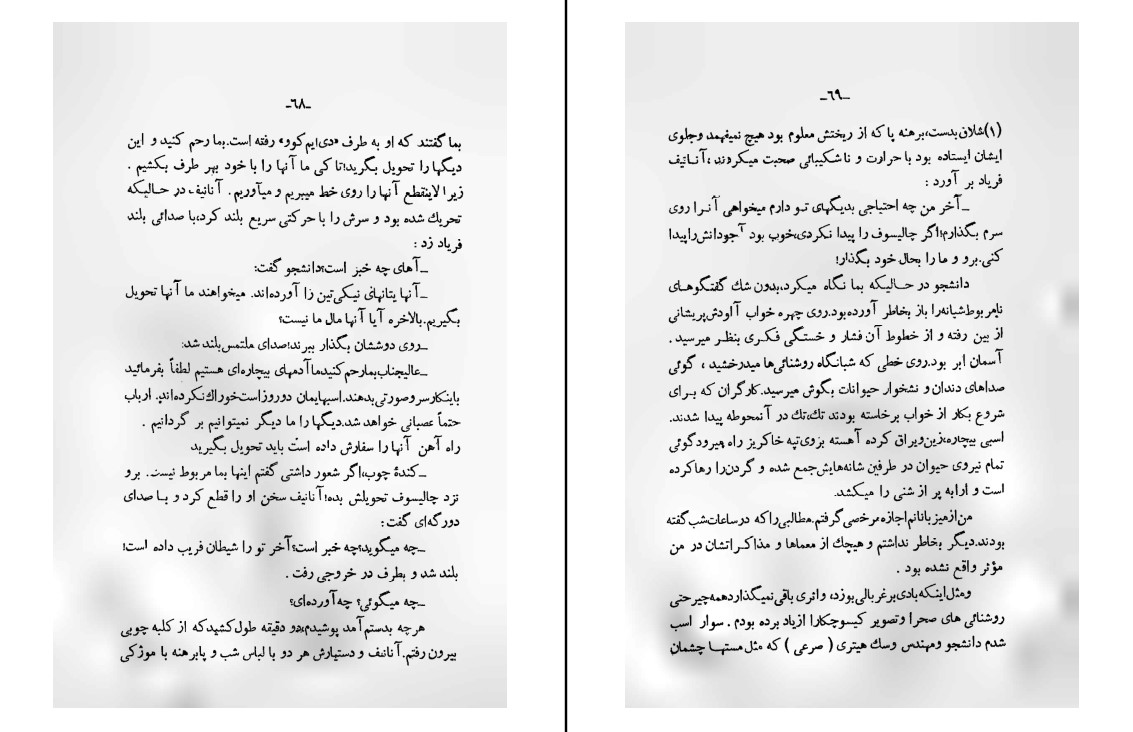 ـ۶۸ـ
بما گفتند که او به طرف «دی‌ایم‌کوو» رفته است.بما رحم کنید و این
دیگها را تحویل بگرید!تا کی ما آنها را با خود بهر طرف بکشیم .
زیرا لاینقطع آنها را روی خط میبریم و میآوریم. آنانیف در حـالیکه
تحریك شده بود و سرش را با حرکتی سریع بلند کرد،با صدائی بلند
فریاد زد :
ـ آهای چه خبز است؟دانشجو گفت:
ـ آنها یتانهای نیکی‌تین زا آورده‌اند. میخواهند ما آنها تحویل
بگیریم.بالاخره آیا آنها مال ما نیست؟
ـ روی دوششان بگذار ببرند!صدای ملتمس بلند شد:
ـ عالیجناب‌بمارحم‌کنیدماآدمهای بیچاره‌ای هستیم لطفاً بفرمائید
باینکار سر و صورتی بدهند.اسبهایمان دو روز است‌خوراك نکرده‌اند. ارباب
حتماً عصبانی خواهد شد.دیگها را ما دیگر نمیتوانیم بر گردانیم .
راه آهن آنها را سفارش داده است باید تحویل بگیرید
ـ کندهٔ چوب،اگر شعور داشتی گفتم اینها بما مربوط نیست. برو
نزد چالیسوف تحویلش بده!آنانیف سخن او را قطع کرد و بـا صدای
دورگه‌ای گفت :
ـ چه میگوید؟چه خبر است؟آخر تو را شیطان فریب داده است!
بلند شد و بطرف در خروجی رفت .
ـ چه میگوئی؟ چه آورده‌ای؟
هرچه بدستم آمد پوشیدم،دو دقیقه طول کشیدکه از کلبه چوبی
بیرون رفتم.آنانیف و دستیارش هر دو با لباس شب و پابرهنه با موژکی
ـ۶۹ـ
(۱)شلاق بدست،برهنه پا که از ریختش معلوم بود هیچ نمیفهمد وجلوی
ایشان ایستاده بود با حرارت و ناشکیبائی صحبت میکردند ،آنـانیف
فریاد بر آورد :
ـ آخر من چه احتیاجی بدیگهای تـو دارم میخواهی آنـرا روی
سرم بگذارم!اگر چالیسوف را پیدا نکردی،خوب بود آجودانش‌را‌پیدا
کنی.برو و ما را بحال خود بگذار!
دانشجو در حـالیکه بما نگاه میکرد،بدون شك گفتگوهـای
نامربوط شبانه‌را باز بخاطر آورده‌بود.روی چهره خواب آلودش‌پریشانی
از بین رفته و از خطوط آن فشار و خستگی فکـری بنظـر میرسید .
آسمان ابر بود.روی خطی که شبانگاه روشنائی‌ها میدرخشید ، گوئی
صداهای دندان و نشخوار حیوانات بگوش میرسید.کارگران که بـرای
شروع بکار از خواب برخاسته بودند تك،تك در آنمحوطه پیدا شدند.
اسبی بیچاره،زین‌ویراق کرده آهسته بروی‌تپه خاکریز راه میرودگوئی
تمام نیروی حیوان در طرفین شانه‌هایش‌جمع شده و گردن‌را رهاکرده
است و ارابه پر از شنی را میکشد.
من‌ازمیزبانانم‌اجازه مرخصی‌گرفتم.مطالبی‌راکه درساعات‌شب‌گفته
بودند.دیگر بخاطر نداشتم و هیچك از معماها و مذاکـراتشان در من
مؤثر واقع نشده بود .
ومثل‌اینکه‌بادی‌برغربالی‌بوزد، واثری باقی‌نمیگذاردهمه‌چیزحتی
روشنائی های صحرا وتصویر کیسوچکارا ازیاد برده بودم . سوار اسب
شدم دانشجو ومهندس وسك هیتری ( صرعی ) که مثل مستهـا چشمان